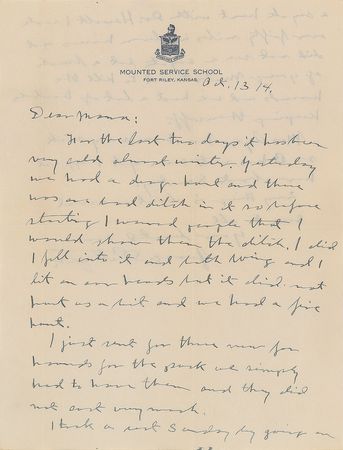 MOUNTED SERVICE SCHOOL
FORT RILEY, KANSAS.
Oct. 13 14.
Dear Mama:
For the last two days it has been
very cold almost winter. Yesterday
we had a drag hunt and there
was one bad ditch in it so before
starting I warned people that I
would show them the ditch. I did
I fell into it and both King and I
lit on our heads but it did not
hurt us a bit and we had a fine
hunt.
I just sent for three new fox
hounds for the pack we simply
had to have them and they did
not cost very much.
I took a rest Sunday by going on